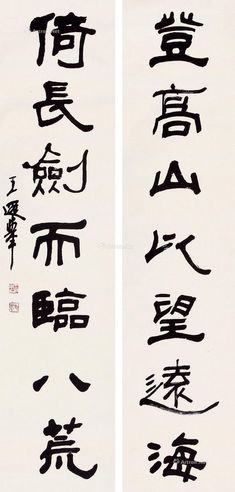 登高山以望遠海
倚長劍而臨八荒
王遐舉